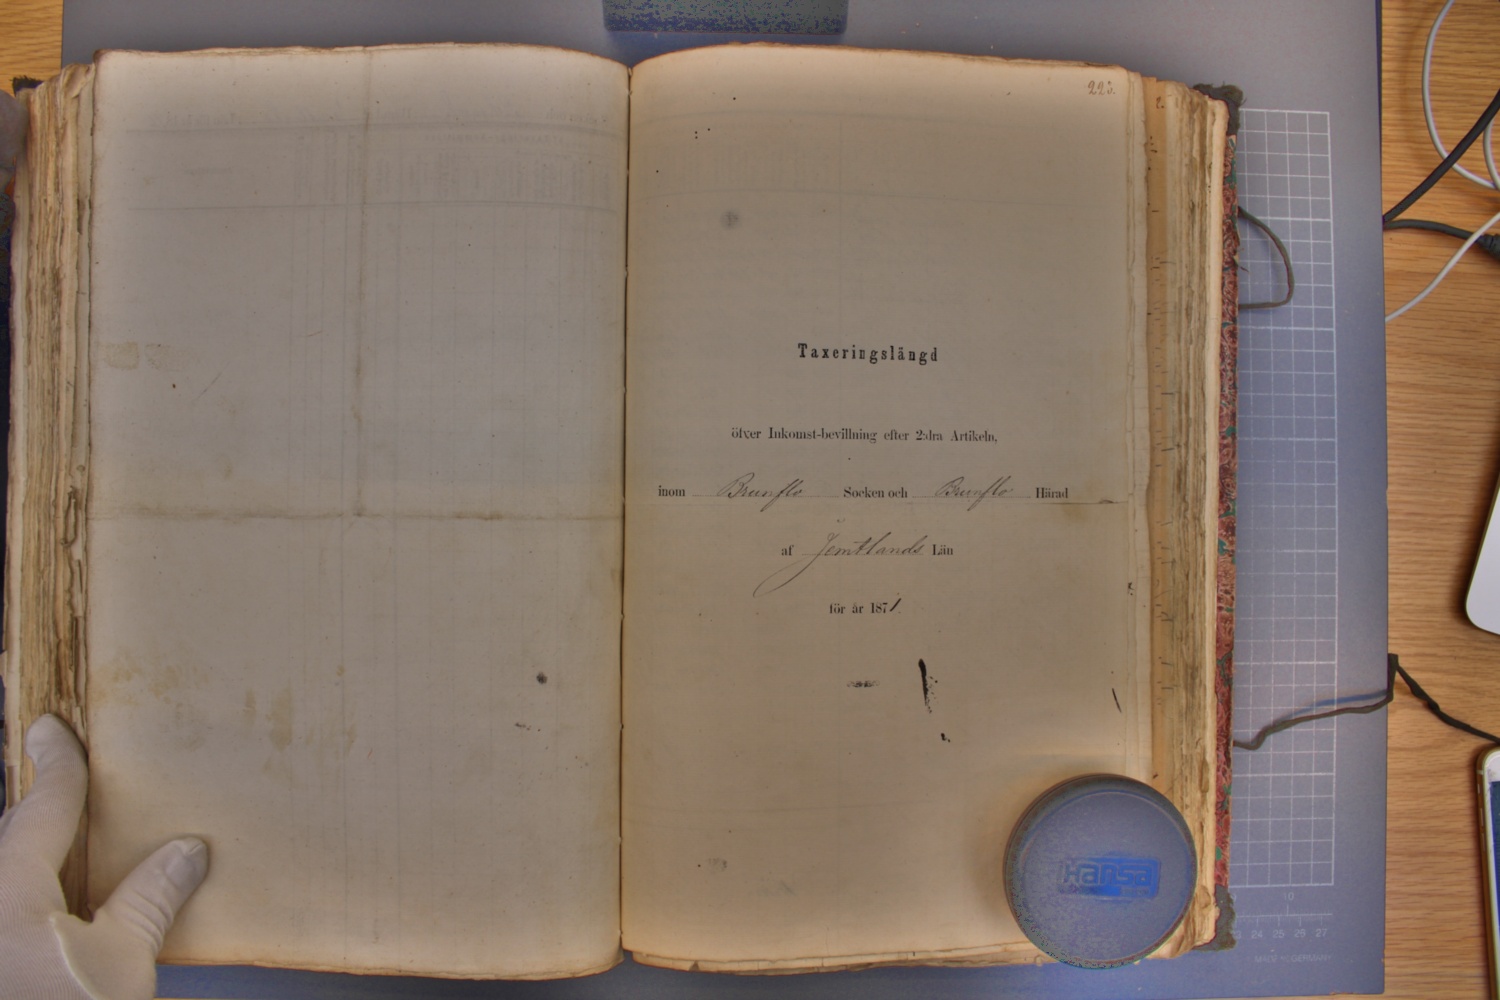 223.
Taxeringslängd
öfver Inkomst-bevillning efter 2:dra Artikeln,
inom Brunflo Socken och Brunflo Härad
af Jemtlands Län
för år 1871.
Hansa
10
24 25 26 27
MADE IN GERMANY